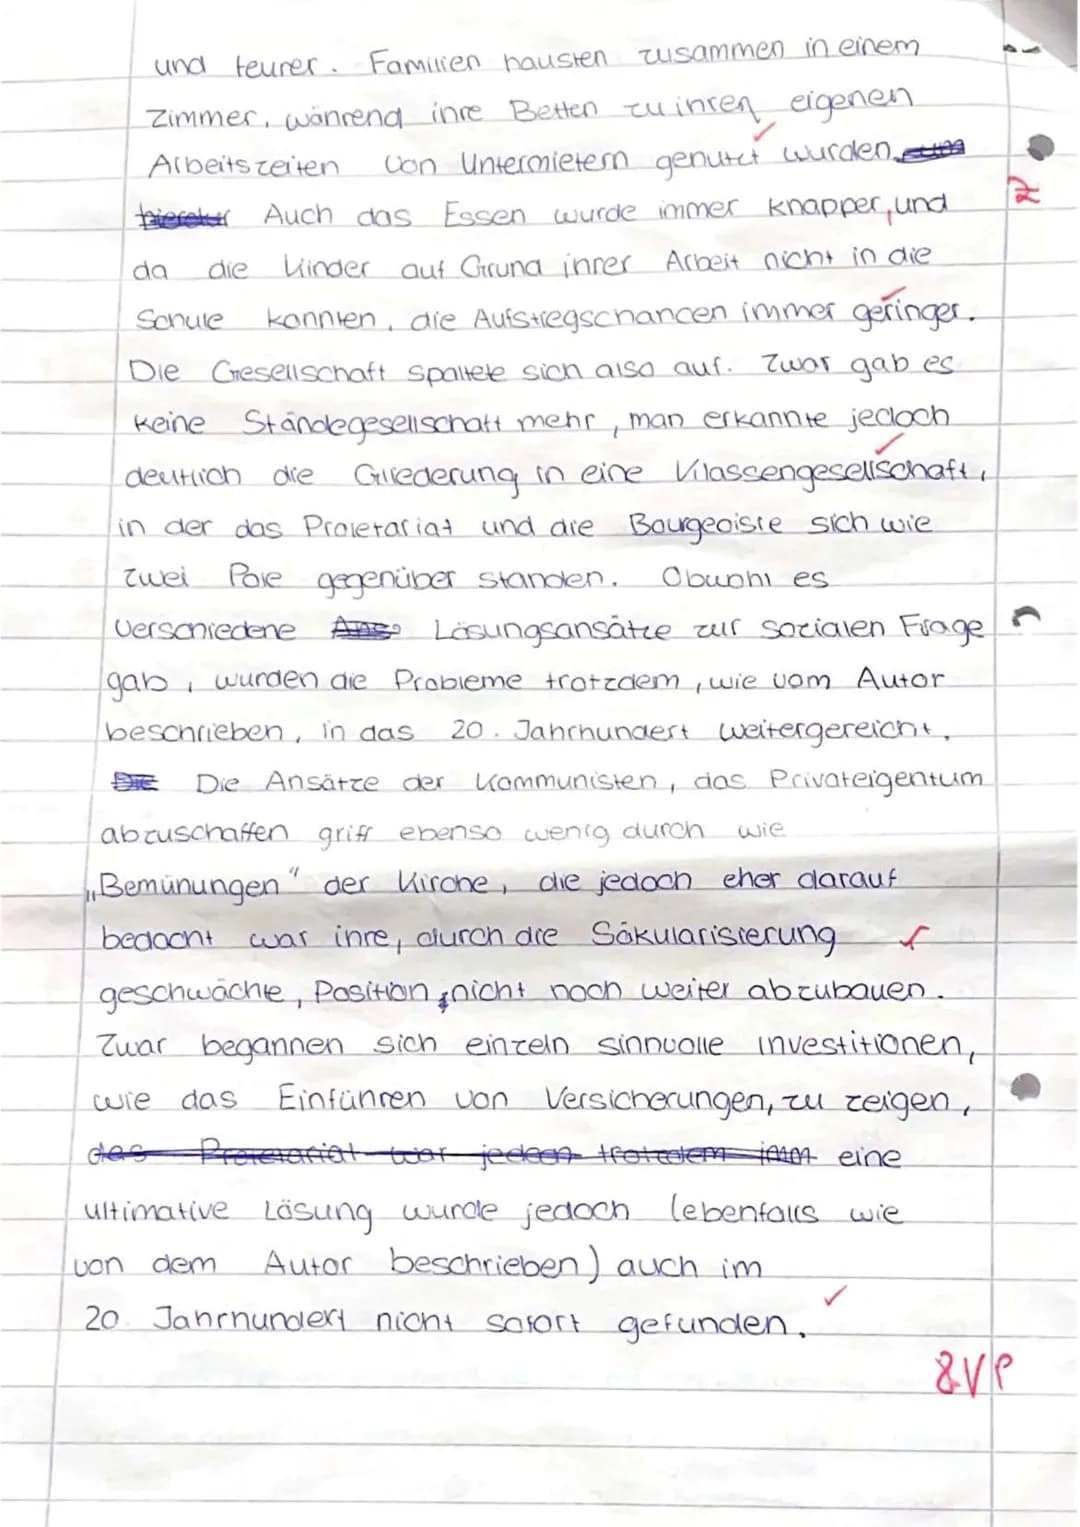 und teurer. Familien hausten zusammen in einem
Zimmer, während ihre Betten zu ihren eigenen
Arbeitszeiten von Untermietern genutzt wurden.
Auch das Essen wurde immer knapper, und
da die Kinder auf Grund ihrer Arbeit nicht in die
Schule konnten, die Aufstiegschancen immer geringer.
Die Gesellschaft spaltete sich also auf. Zwar gab es
keine Ständegesellschaft mehr, man erkannte jedoch
deutlich die Gliederung in eine Klassengesellschaft,
in der das Proletariat und die Bourgeoisie sich wie
zwei Pole gegenüber standen. Obwohl es
verschiedene Lösungsansätze zur sozialen Frage
gab, wurden die Probleme trotzdem, wie vom Autor
beschrieben, in das 20. Jahrhundert weitergereicht.
Die Ansätze der Kommunisten, das Privateigentum
abzuschaffen griff ebenso wenig durch wie
„Bemühungen“ der Kirche, die jedoch eher darauf
bedacht war ihre, durch die Säkularisierung
geschwächte, Position, nicht noch weiter abzubauen.
Zwar begannen sich einzeln sinnvolle Investitionen,
wie das Einführen von Versicherungen, zu zeigen,
das Proletariat war jedoch trotzdem eine
ultimative Lösung wurde jedoch (ebenfalls wie
von dem Autor beschrieben) auch im
20. Jahrhundert nicht sofort gefunden.
8VP